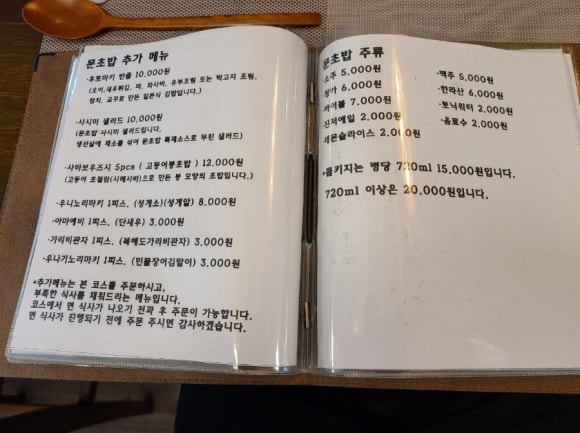 문초밥 추가 메뉴
·후토마키 반줄 10,000원
(오이,새우튀김, 마, 와사바, 유부조림 또는 박고지 조림,
참치, 교꾸로 만든 일본식 김밥입니다.)
·사시미 샐러드 10,000원
(문초밥 사시미 샐러드입니다.
생선살에 채소를 섞어 문초밥 특제소스로 무친 샐러드)
·사바보우즈시 5pcs ( 고등어봉초밥 ) 12,000원
(고등어 초절임(시메사바)으로 만든 봉 모양의 초밥입니다.)
·우니노리마키 1피스, (성게소)(성게알) 8,000원
·아마에비 1피스, (단새우) 3,000원
·가리비관자 1피스, (북해도가리비관자) 3,000원
·우나기노리마키 1피스, (민물장어김말이) 3,000원
*추가메뉴는 본 코스를 주문하시고,
부족한 식사를 채워드리는 메뉴입니다.
코스에서 면 식사가 나오기 전과 후 주문이 가능합니다.
면 식사가 진행되기 전에 주문 주시면 감사하겠습니다.
문초밥 주류
·소주 5,000원
·청하 6,000원
·하이볼 7,000원
·진저에일 2,000원
·레몬슬라이스 2,000원
·맥주 5,000원
·한라산 6,000원
·토닉워터 2,000원
·음료수 2,000원
*콜키지는 병당 720ml 15,000원입니다.
720ml 이상은 20,000원입니다.